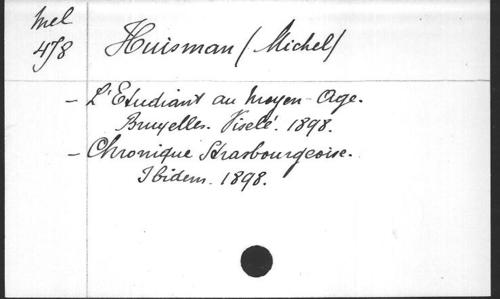 Mel
478
Huisman (Michel)
- L'Etudiant au Moyen-Age.
Bruxelles. Viselé. 1898.
- Chronique Strasbourgeoise.
Ibidem. 1898.